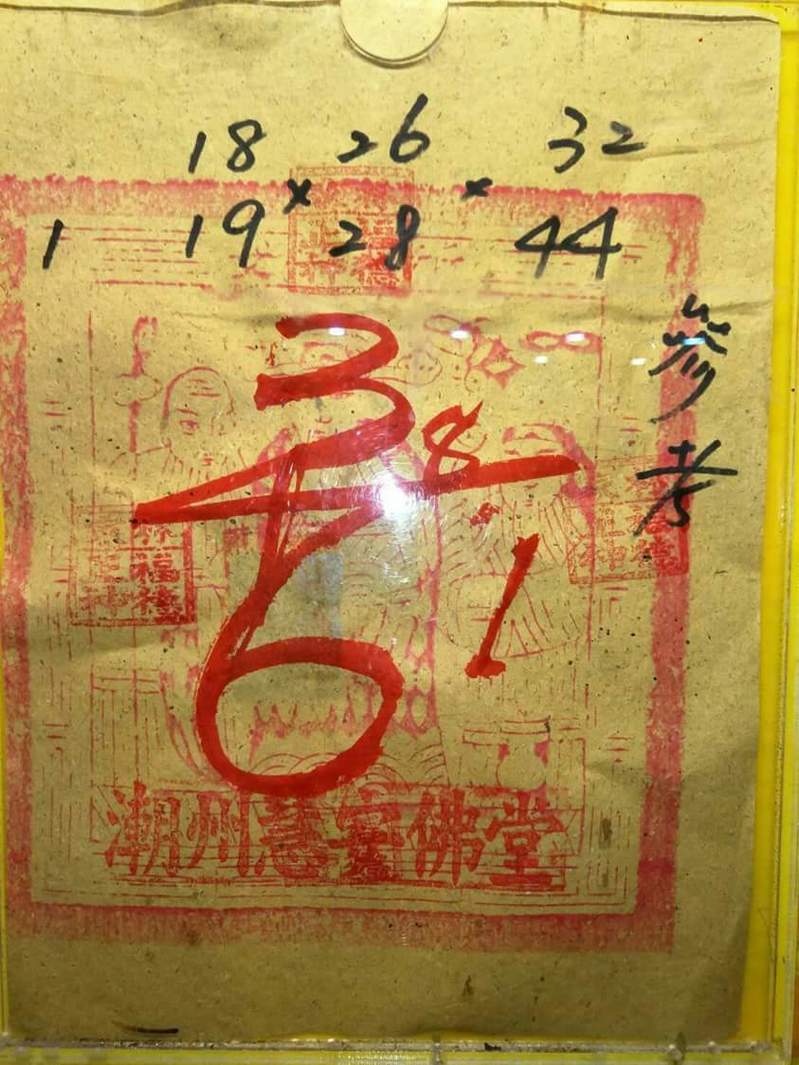 18 26 32
× ×
1 19 28 44
參考
3
8
6 1
福德
潮州慧安佛堂